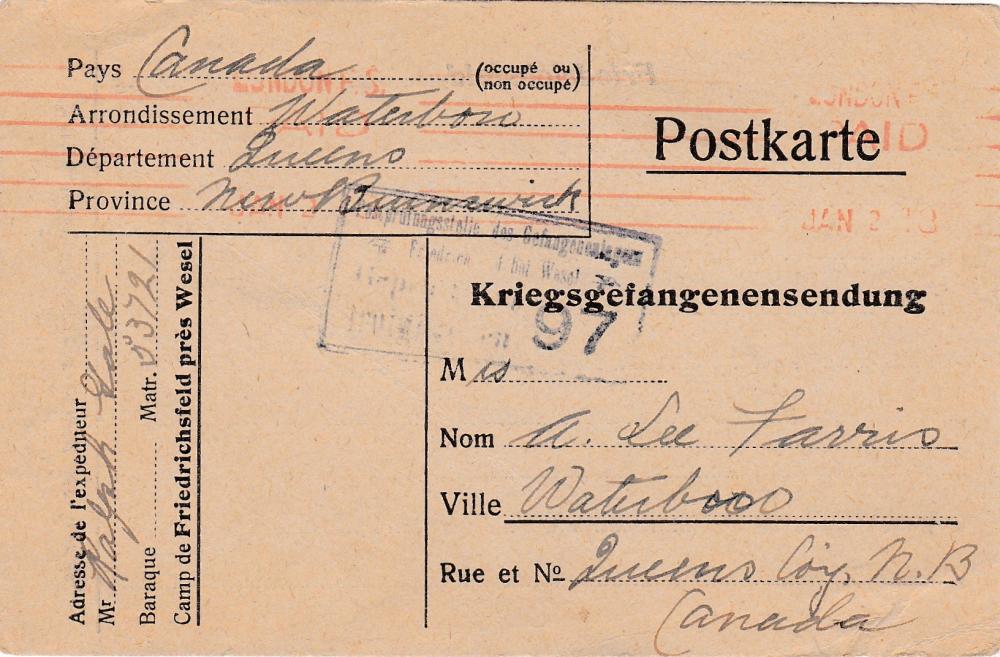 Pays Canada (occupé ou non occupé)
Arrondissement Waterboro
Département Queens
Province New Brunswick
Postkarte
LONDON F.S.
PAID
JAN 2
LONDON F
PAID
JAN 2 18
Postprüfungsstelle des Gefangenenlagers
Friedrichsfeld bei Wesel
97
Kriegsgefangenensendung
Mrs
Nom A. Lee Farris
Ville Waterboro
Rue et No Queens Coy. N.B
Canada
Adresse de l'expéditeur
Mr Ralph Dale
Baraque Matr. 53721
Camp de Friedrichsfeld près Wesel